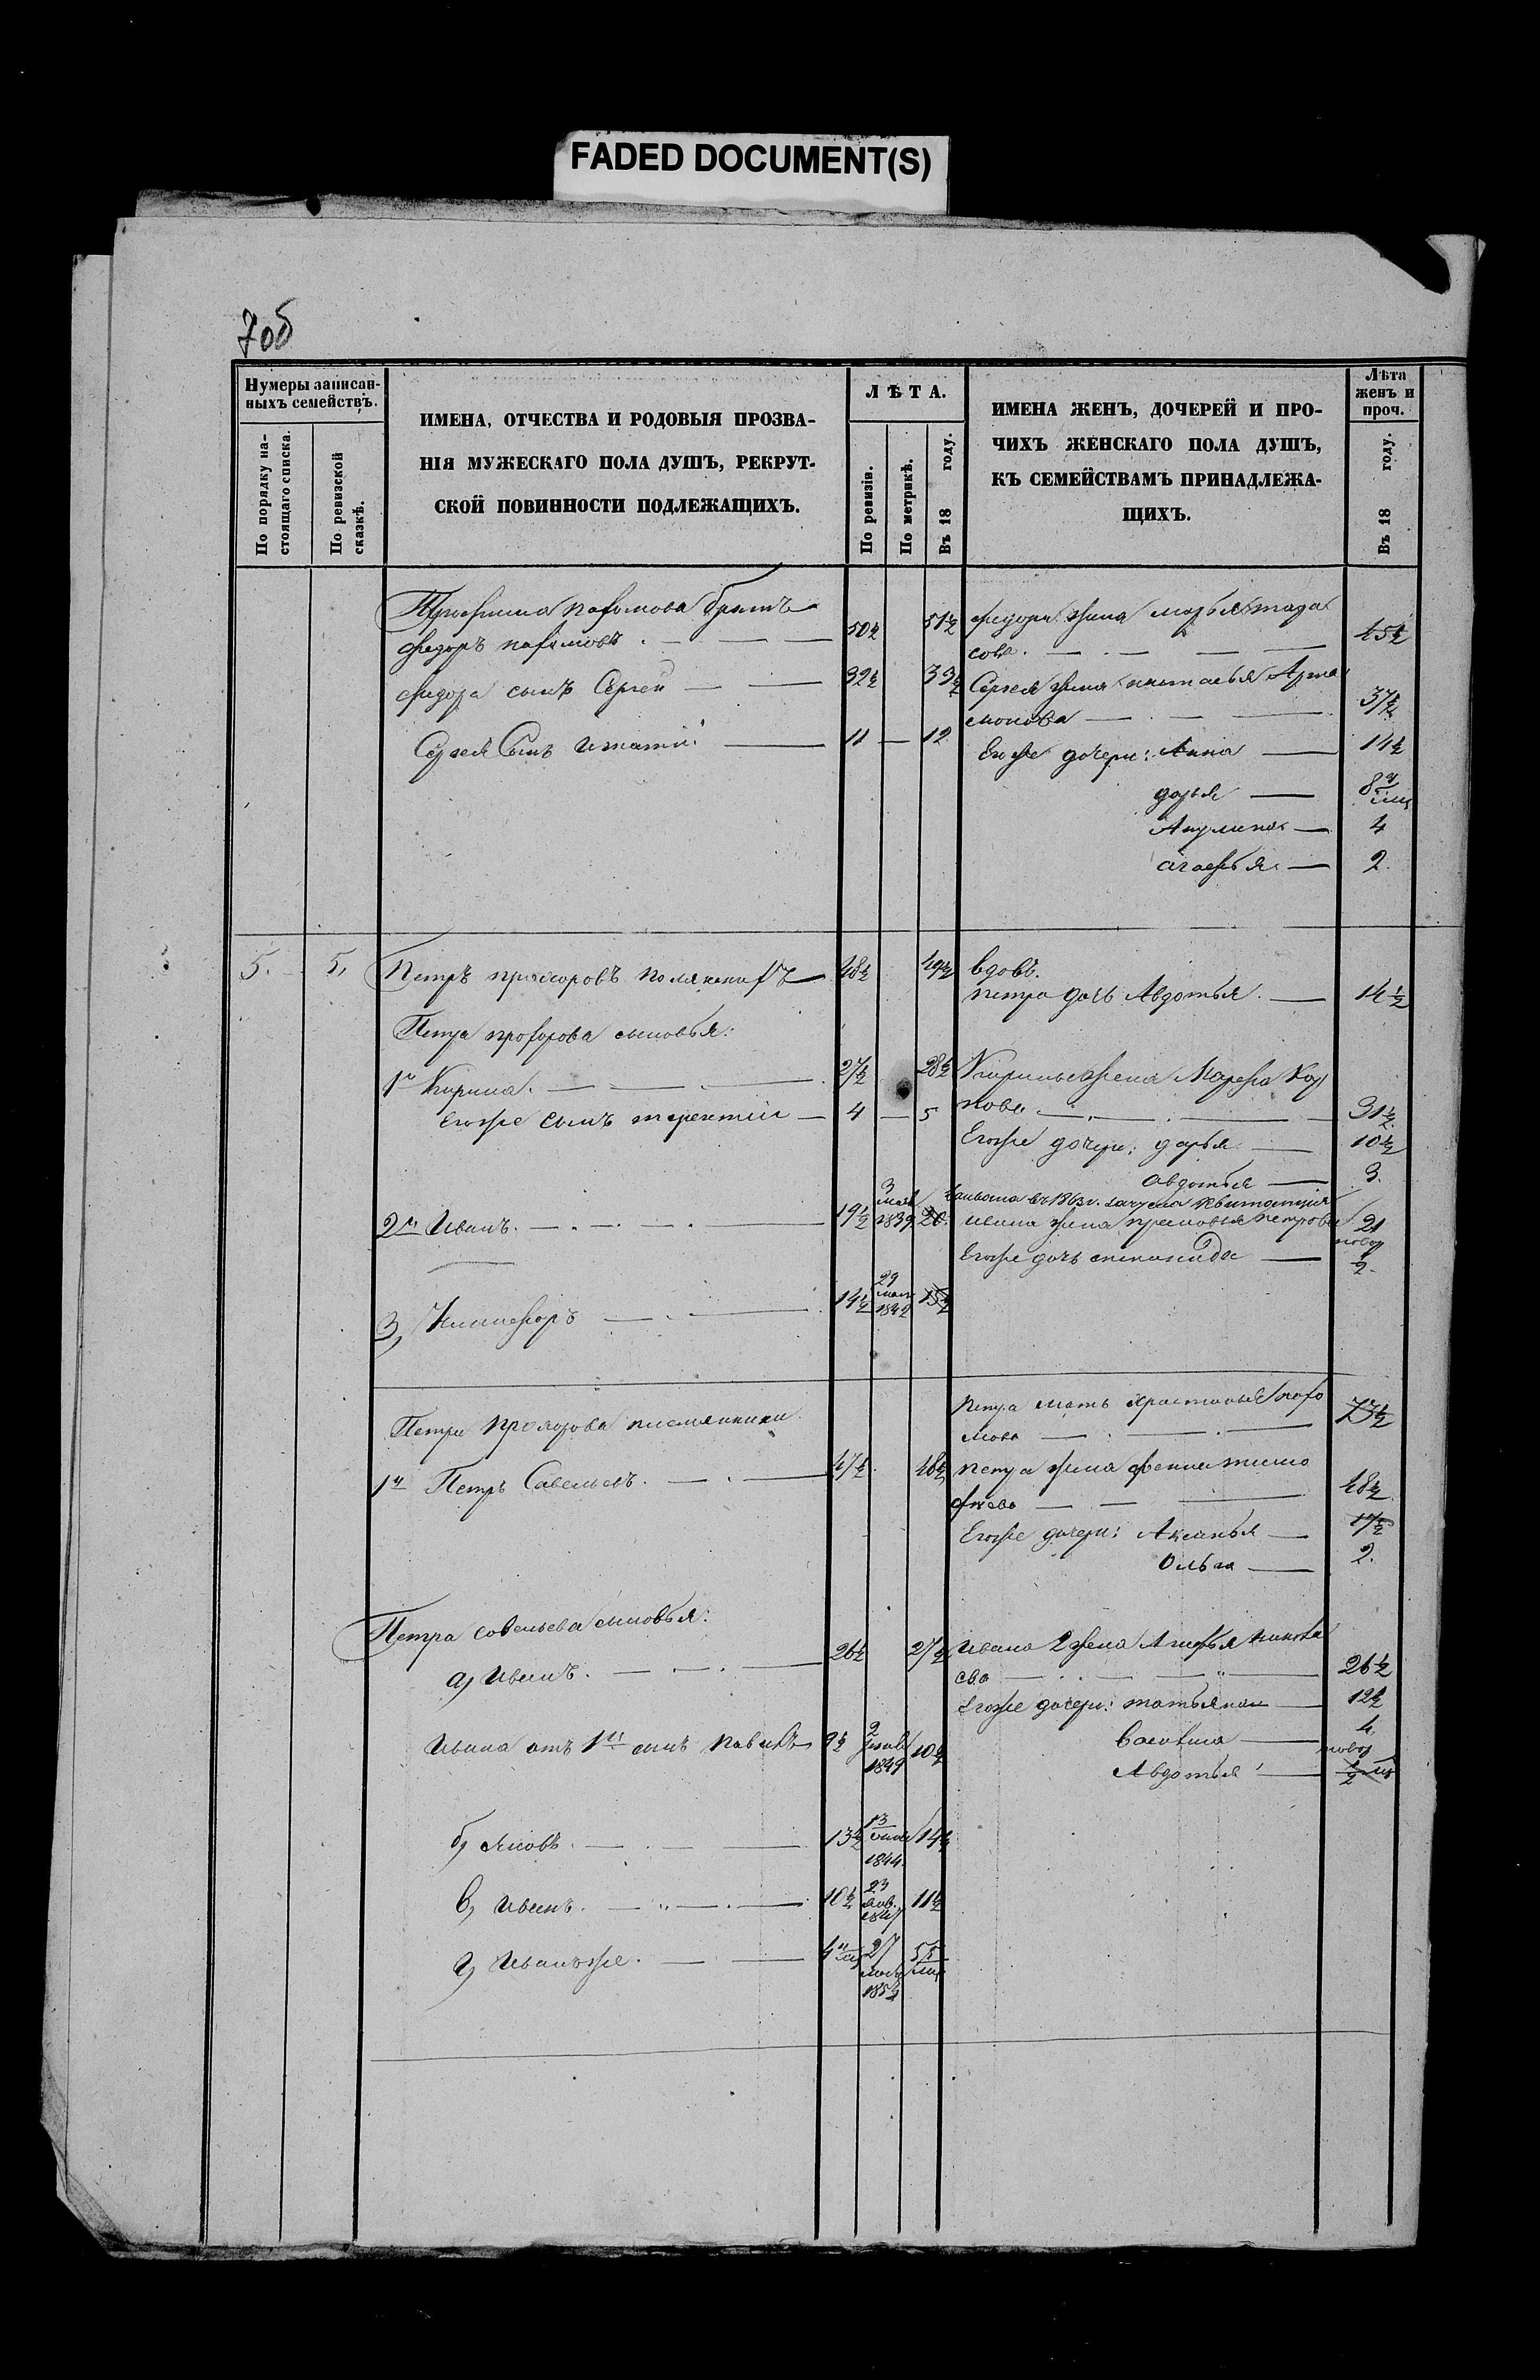 FADED DOCUMENT(S)
70б
Нумеры записан-
ныхъ семействъ.
По порядку на-
стоящаго списка.
По ревизской
сказкѣ.
ИМЕНА, ОТЧЕСТВА И РОДОВЫЯ ПРОЗВА-
НІЯ МУЖЕСКАГО ПОЛА ДУШЪ, РЕКРУТ-
СКОЙ ПОВИННОСТИ ПОДЛЕЖАЩИХЪ.
ЛѢТА.
По ревизіи.
По метрикѣ.
Въ 18 году.
ИМЕНА ЖЕНЪ, ДОЧЕРЕЙ И ПРО-
ЧИХЪ ЖЕНСКАГО ПОЛА ДУШЪ,
КЪ СЕМЕЙСТВАМЪ ПРИНАДЛЕЖА-
ЩИХЪ.
Лѣта
женъ и
проч.
Въ 18 году.
Пахомова братъ
Федоръ Пахомовъ 50½ 51½
Федора жена Марья
сова 45½
Федора сынъ Сергей 32½ 33½
Сергея жена Наталья Арта
монова 37½
Сергея Сынъ Игнатий 11 12
Егоже дочери: Анна 14½
дарья 8
Акулина 4
агафья 2.
5. 5,
Петръ прохоровъ 48½ 49½
вдовъ.
петра дочь Авдотья 14½
Петра прохорова сыновья:
1й Кирила 27½ 28½
Кирилы жена Марфа Кар
пова 31½
Егоже сынъ терентий 4 5
Егоже дочери: дарья 10½
авдотья 3.
2й Иванъ. 19½ 3 мая 1839 20
въ 1863 г. квитанция
ивана жена петрова 21
Егоже дочь степанида ½
3, Никифоръ 14½ 29 1842 15½
Петра прохорова племянники
Петра мать Христинья пахо
мова 73½
1й Петръ Савельевъ 47½ 48½
петра жена тимо
фѣева 48½
Егоже дочери: Аксинья 17½
Ольга 2.
Петра савельева сыновья:
а) Иванъ. 26½ 27½
Ивана 2 жена Агафья
ева 26½
Егоже дочери: татьяна 12½
Василиса 4
Авдотья ½
Ивана отъ 1й сынъ 9½ 2 1849 10½
б) Яковъ 13½ 13 1844 14½
в) Иванъ. 10½ 23 1847 11½
г) Иванъже. 27